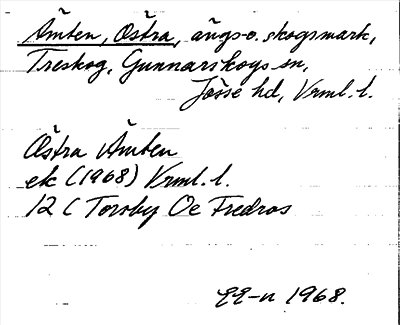 Åmten, Östra, ängs- o. skogsmark,
Treskog, Gunnarskogs sn,
Jösse hd, Vrml. l.
Östra Åmten
ek (1968) Vrml. l.
12 C Torsby Öe Fredros
1968.